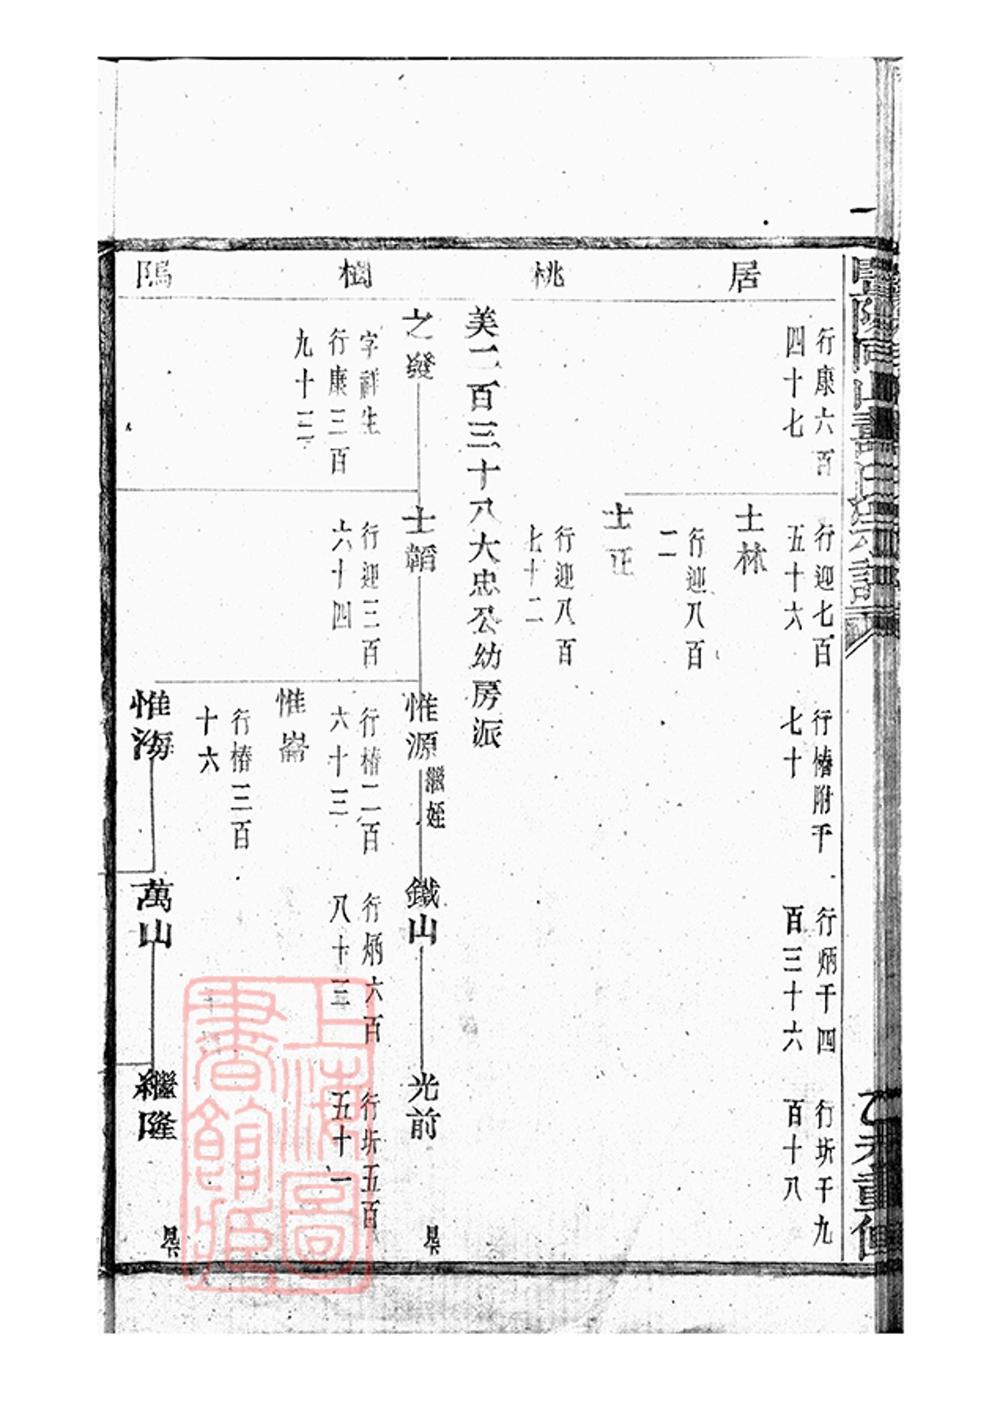 居 桃 樹 隖
行康六百
四十七
行迎七百
五十六
行椿附千
七十
行炳千四
百三十六
行圻千九
百十八
士林
行迎八百
二
士正
行迎八百
七十二
美二百三十八大忠公幼房派
之發
士韜
惟源
繼姪
鐵山
光前
見下
字祥生
行康三百
九十三
行迎三百
六十四
行椿二百
六十三
行炳六百
八十三
行圻五百
五十一
惟崙
行椿三百
十六
惟海
萬山
繼隆
見下
上海圖
書館藏